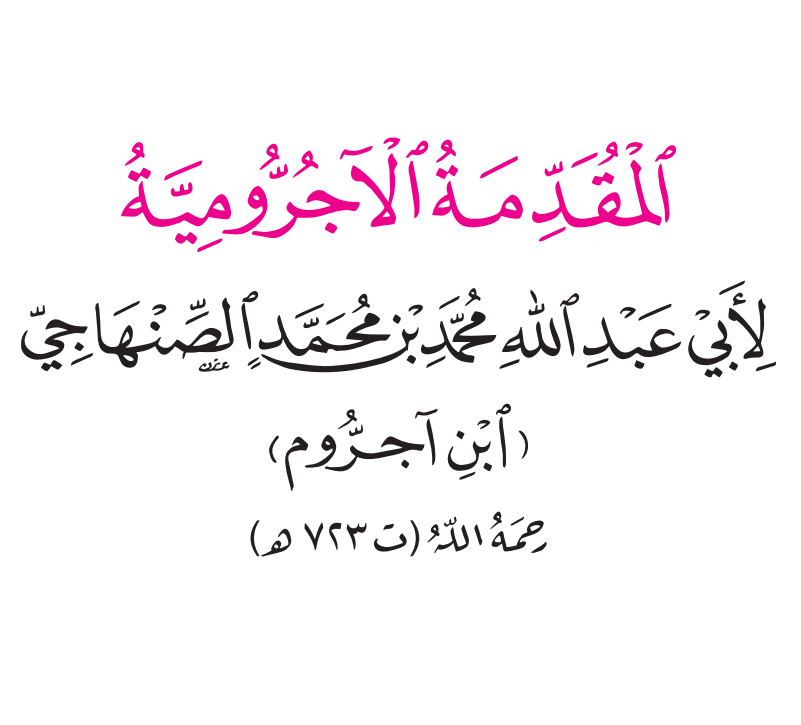 ٱلْمُقَدِّمَةُ ٱلْآجُرُّومِيَّةُ
لِأَبِيْ عَبْدِ ٱللهِ مُحَمَّدِ بْنِ مُحَمَّدٍ ٱلصِّنْهَاجِيِّ
(ٱبْنِ آجُرُّوم)
رَحِمَهُ اللّٰهُ (ت ٧٢٣ هـ)